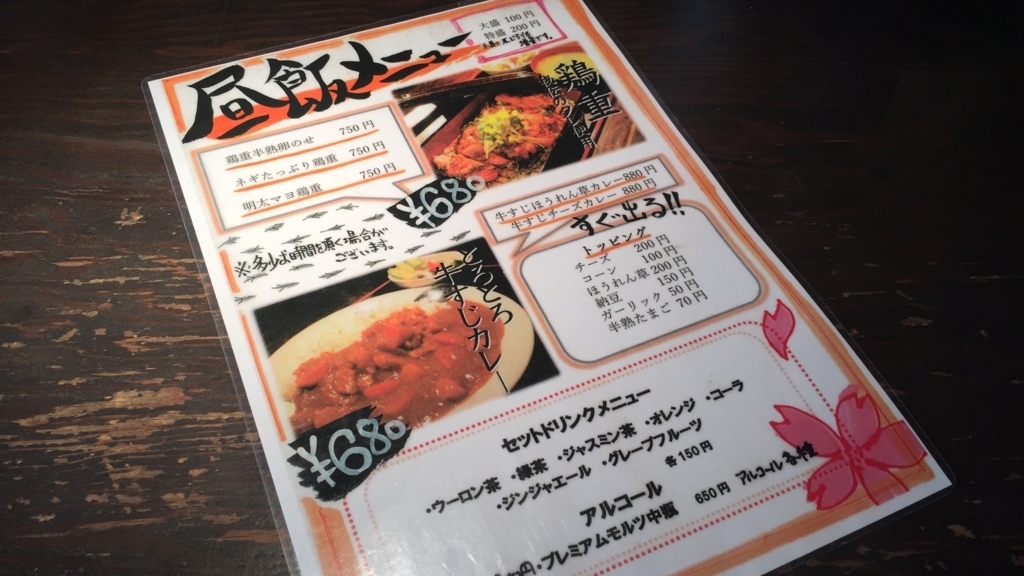 大盛 100円
特盛 200円
昼飯メニュー
鶏重
鶏重半熟卵のせ 750円
ネギたっぷり鶏重 750円
明太マヨ鶏重 750円
¥680
※多少お時間を頂く場合が
ございます。
牛すじほうれん草カレー880円
牛すじチーズカレー 880円
すぐ出る!!
トッピング
チーズ 200円
コーン 100円
ほうれん草 200円
納豆 150円
ガーリック 50円
半熟たまご 70円
とろとろ
牛すじカレー
¥680
セットドリンクメニュー
・ウーロン茶 ・緑茶 ・ジャスミン茶 ・オレンジ ・コーラ
・ジンジャエール ・グレープフルーツ
各150円
アルコール
・プレミアムモルツ中瓶 650円 アルコール各種